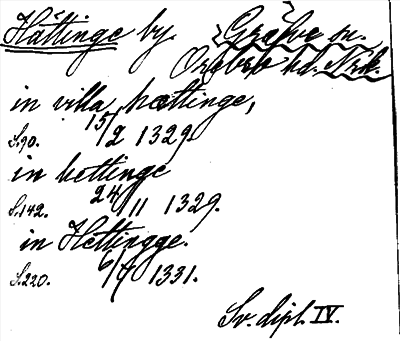 Hättinge by. Gräfve sn.
Örebro hd. Nrk.
in villa hættinge,
S.90. 15/2 1329.
in hettinge
S.142. 24/11 1329.
in Hettingge.
S.220. 6/7 1331.
Sv. dipl. IV.